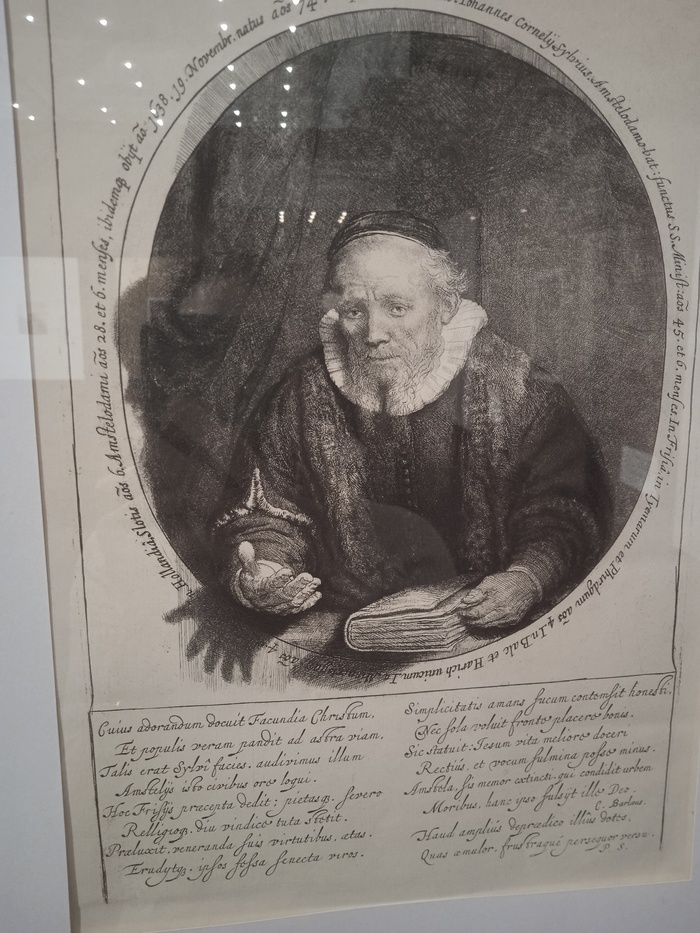 Iohannes Cornelij Sylvius, Amstelodamobat: functus S S. Minist: aõs 45. et 6. menses. In Frisia in Tyemarum et Phirdgum aõs 4. In Balc et Harich unicum. In aõs 4. In Hollandia Slotis aõs 6. Amstelodami aõs 28. et 6. menses, ibidemq obijt aõ 1638. 19. Novembr. natus aõs 74.
Cuius adorandum docuit Facundia Christum,
Et populis veram pandit ad astra viam,
Talis erat Sylvî facies. audivimus illum
Amstelijs isto civibus ore loqui.
Hoc Frisijs præcepta dedit; pietasq. severo
Relligioq. diu vindice tuta stetit.
Præluxit, veneranda suis virtutibus, ætas.
Erudytq. ipsos fessa senecta viros.
Simplicitatis amans fucum contemsit honesti,
Nec sola voluit fronte placere bonis.
Sic statuit: Iesum vita meliore doceri
Rectiùs, et vocum fulmina posse minus.
Amstela, sis memor extincti, qui condidit urbem
Moribus, hanc ipso fulsijt ille Deo.
C. Barlæus.
Haud amplius deprædico illius dotes,
Quas æmulor, frustraque persequor versu.
P. S.